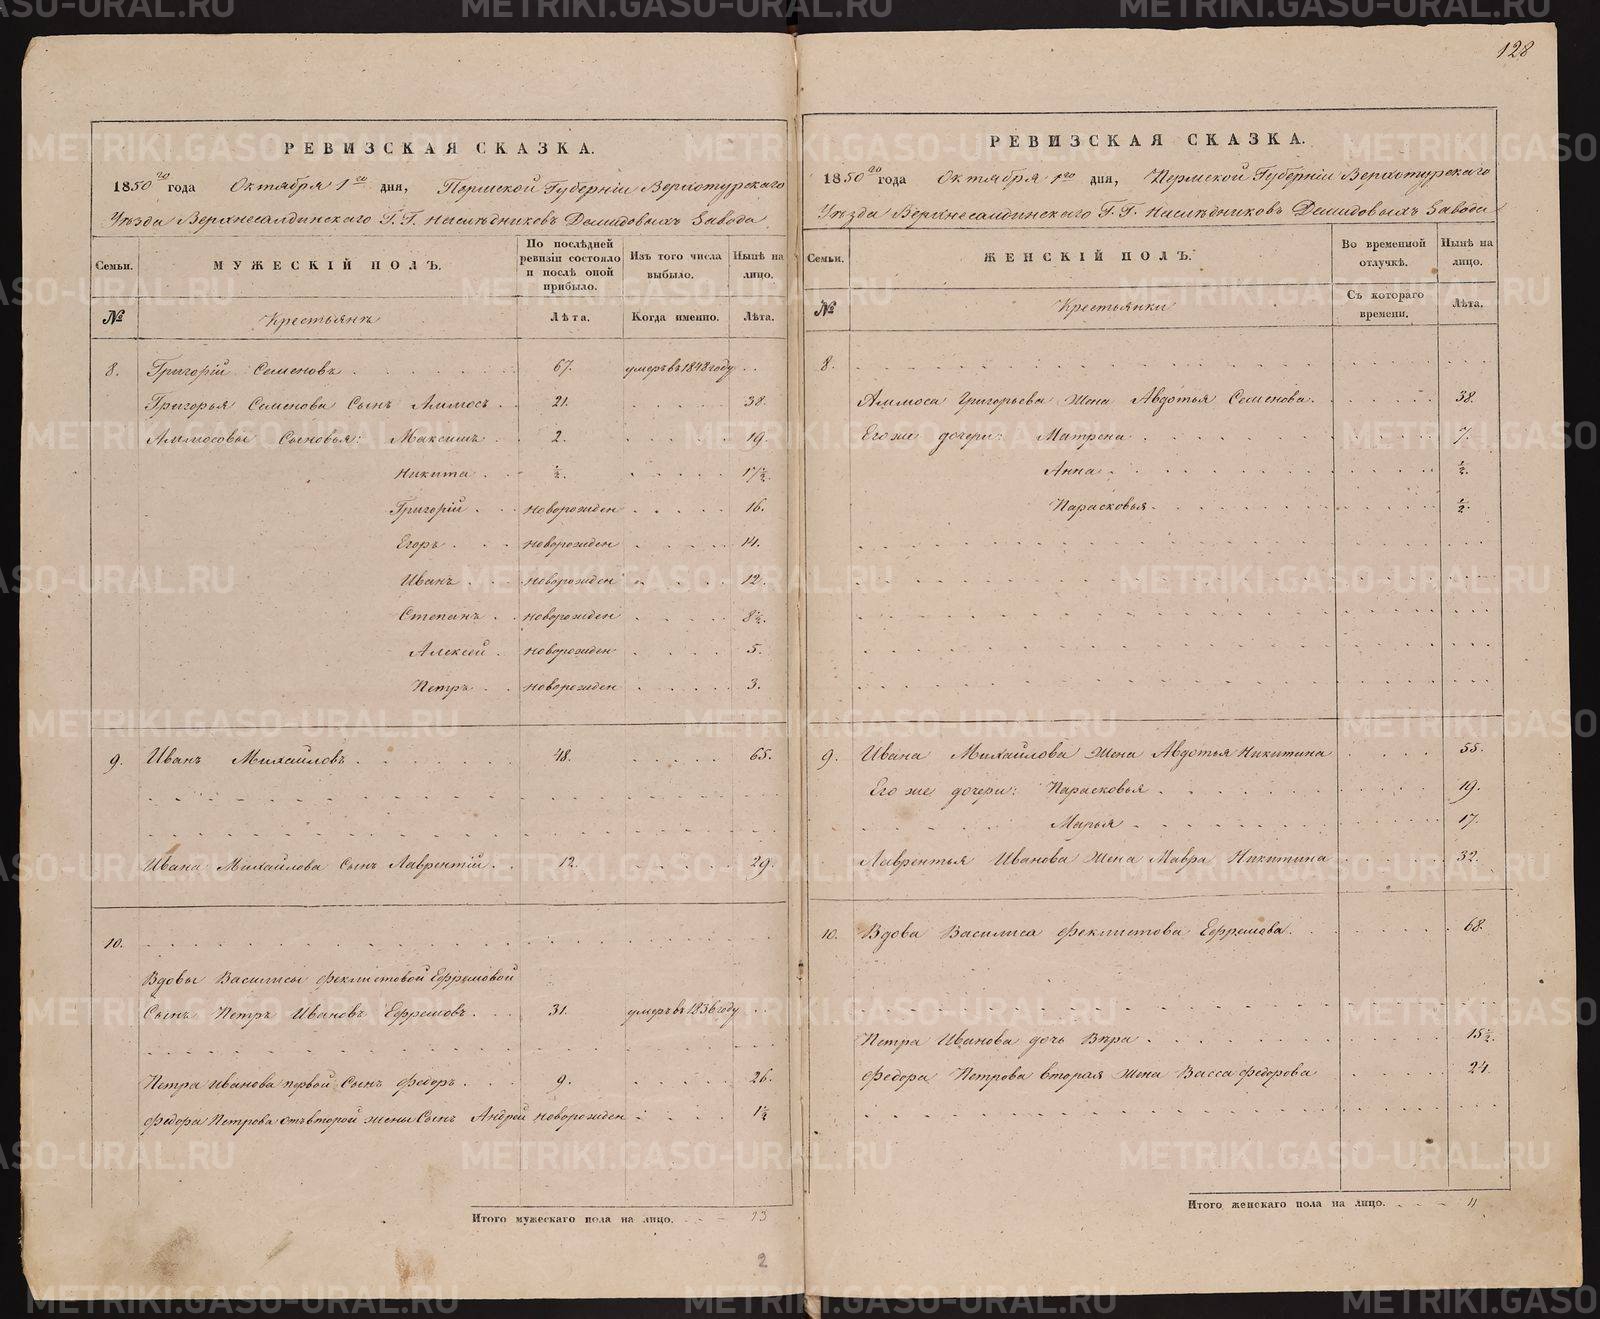 128
РЕВИЗСКАЯ СКАЗКА.
1850го года Октября 1го дня, Пермской Губерніи Верхотурскаго
Уѣзда Верхнесалдинскаго Г. Г. Наслѣдниковъ Демидовыхъ Завода
Семьи. МУЖЕСКІЙ ПОЛЪ. По послѣдней ревизіи состояло и послѣ оной прибыло. Изъ того числа выбыло. Нынѣ на лицо.
№ Крестьянъ Лѣта. Когда именно. Лѣта.
8. Григорій Семеновъ 67. умеръ въ 1848 году
Григорья Семенова Сынъ Аммосъ 21. 38.
Аммосовы Сыновья: Максимъ 2. 19.
Никита ½. 17½.
Григорій новорожден 16.
Егоръ новорожден 14.
Иванъ новорожден 12.
Степанъ новорожден 8½.
Алексей новорожден 5.
Петръ новорожден 3.
9. Иванъ Михайловъ 48. 65.
Ивана Михайлова Сынъ Лаврентій 12. 29.
10.
Вдовы Василисы Феклистовой Ефремовой
Сынъ Петръ Ивановъ Ефремовъ 31. умеръ въ 1836 году
Петра Иванова первой Сынъ Федоръ 9. 26.
Федора Петрова отъ второй жены Сынъ Андрей новорожден 1½
Итого мужескаго пола на лицо. 13
2
РЕВИЗСКАЯ СКАЗКА.
1850го года Октября 1го дня, Пермской Губерніи Верхотурскаго
Уѣзда Верхнесалдинскаго Г. Г. Наслѣдниковъ Демидовыхъ Завода
Семьи. ЖЕНСКІЙ ПОЛЪ. Во временной отлучкѣ. Нынѣ на лицо.
№ Крестьянки Съ котораго времени. Лѣта.
8.
Аммоса Григорьева жена Авдотья Семенова 38.
Его же дочери: Матрена 7.
Анна ½.
Парасковья ½.
9. Ивана Михайлова жена Авдотья Никитина 55.
Его же дочери: Парасковья 19.
Марья 17.
Лаврентья Иванова жена Мавра Никитина 32.
10. Вдова Василиса Феклистова Ефремова 68.
Петра Иванова дочь Вѣра 15½.
Федора Петрова вторая жена Васса Федорова 24.
Итого женскаго пола на лицо. 11
METRIKI.GASO-URAL.RU